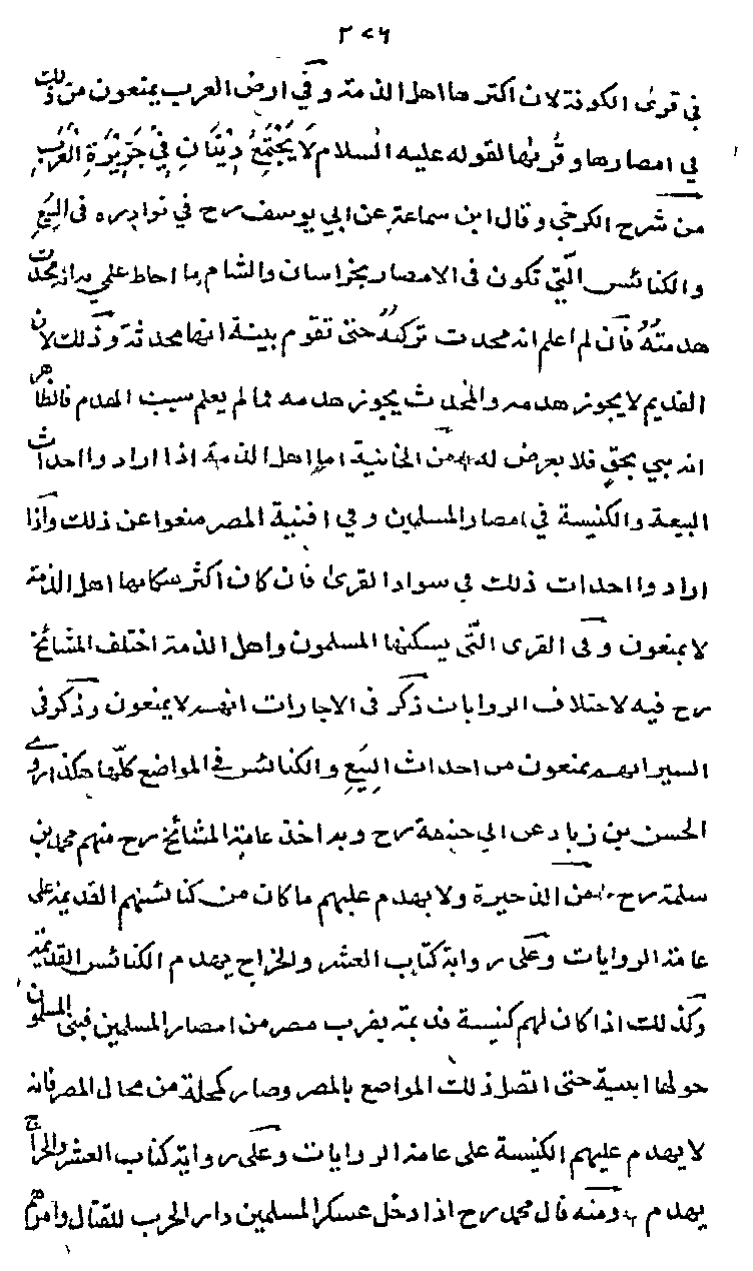 ٢٧٦
في قرى الكوفة لان اكثرها اهل الذمة وفي ارض العرب يمنعون من ذلك
في امصارها وقُرٰىها لقوله عليه السلام لَا يَجْتَمِعُ دِيْنَانِ فِيْ جَزِيْرَةِ الْعَرَبِ
من شرح الكرخي وقال ابن سماعة عن ابي يوسف رح في نوادره في البِيَعِ
والكنائس الّتي تكون في الامصار بخراسان والشام ما احاط علمي به انه محدث
هدمتُهُ فان لم اعلم انه محدث تركتُهُ حتى تقوم بينة انها محدثة وذلك لان
القديم لا يجوز هدمه والمحدث يجوز هدمه فما لم يعلم سبب الهدم فالظاهر
انه بني بحقٍ فلا يعرض له من الخانية اما اهل الذمة اذا ارادوا احداث
البيعة والكنيسة في امصار المسلمين وفي افنية المصر منعوا عن ذلك واذا
ارادوا احداث ذلك في سواد القرى فان كان اكثر سكانها اهل الذمة
لا يمنعون وفي القرى الّتي يسكنها المسلمون واهل الذمة اختلف المشائخ
رح فيه لاختلاف الروايات ذكر في الاجارات انهم لا يمنعون وذكر في
السير انهم يمنعون من احداث البِيَعِ والكنائس في المواضع كلّها هكذا روى
الحسن بن زياد عن ابي حنيفة رح وبه اخذ عامة المشائخ رح منهم محمد بن
سلمة رح من الذخيرة ولا يهدم عليهم ما كان من كنائسهم القديمة على
عامة الروايات وعلى رواية كتاب العشر والخراج يهدم الكنائس القديمة
وكذلك اذا كان لهم كنيسة قديمة بقرب مصر من امصار المسلمين فبنى المسلمون
حولها ابنية حتى اتصل ذلك المواضع بالمصر وصار كمحلة من محال المصر فانه
لا يهدم عليهم الكنيسة على عامة الروايات وعلى رواية كتاب العشر والخراج
يهدم ومنه قال محمد رح اذا دخل عسكر المسلمين دار الحرب للقتال وامرهم